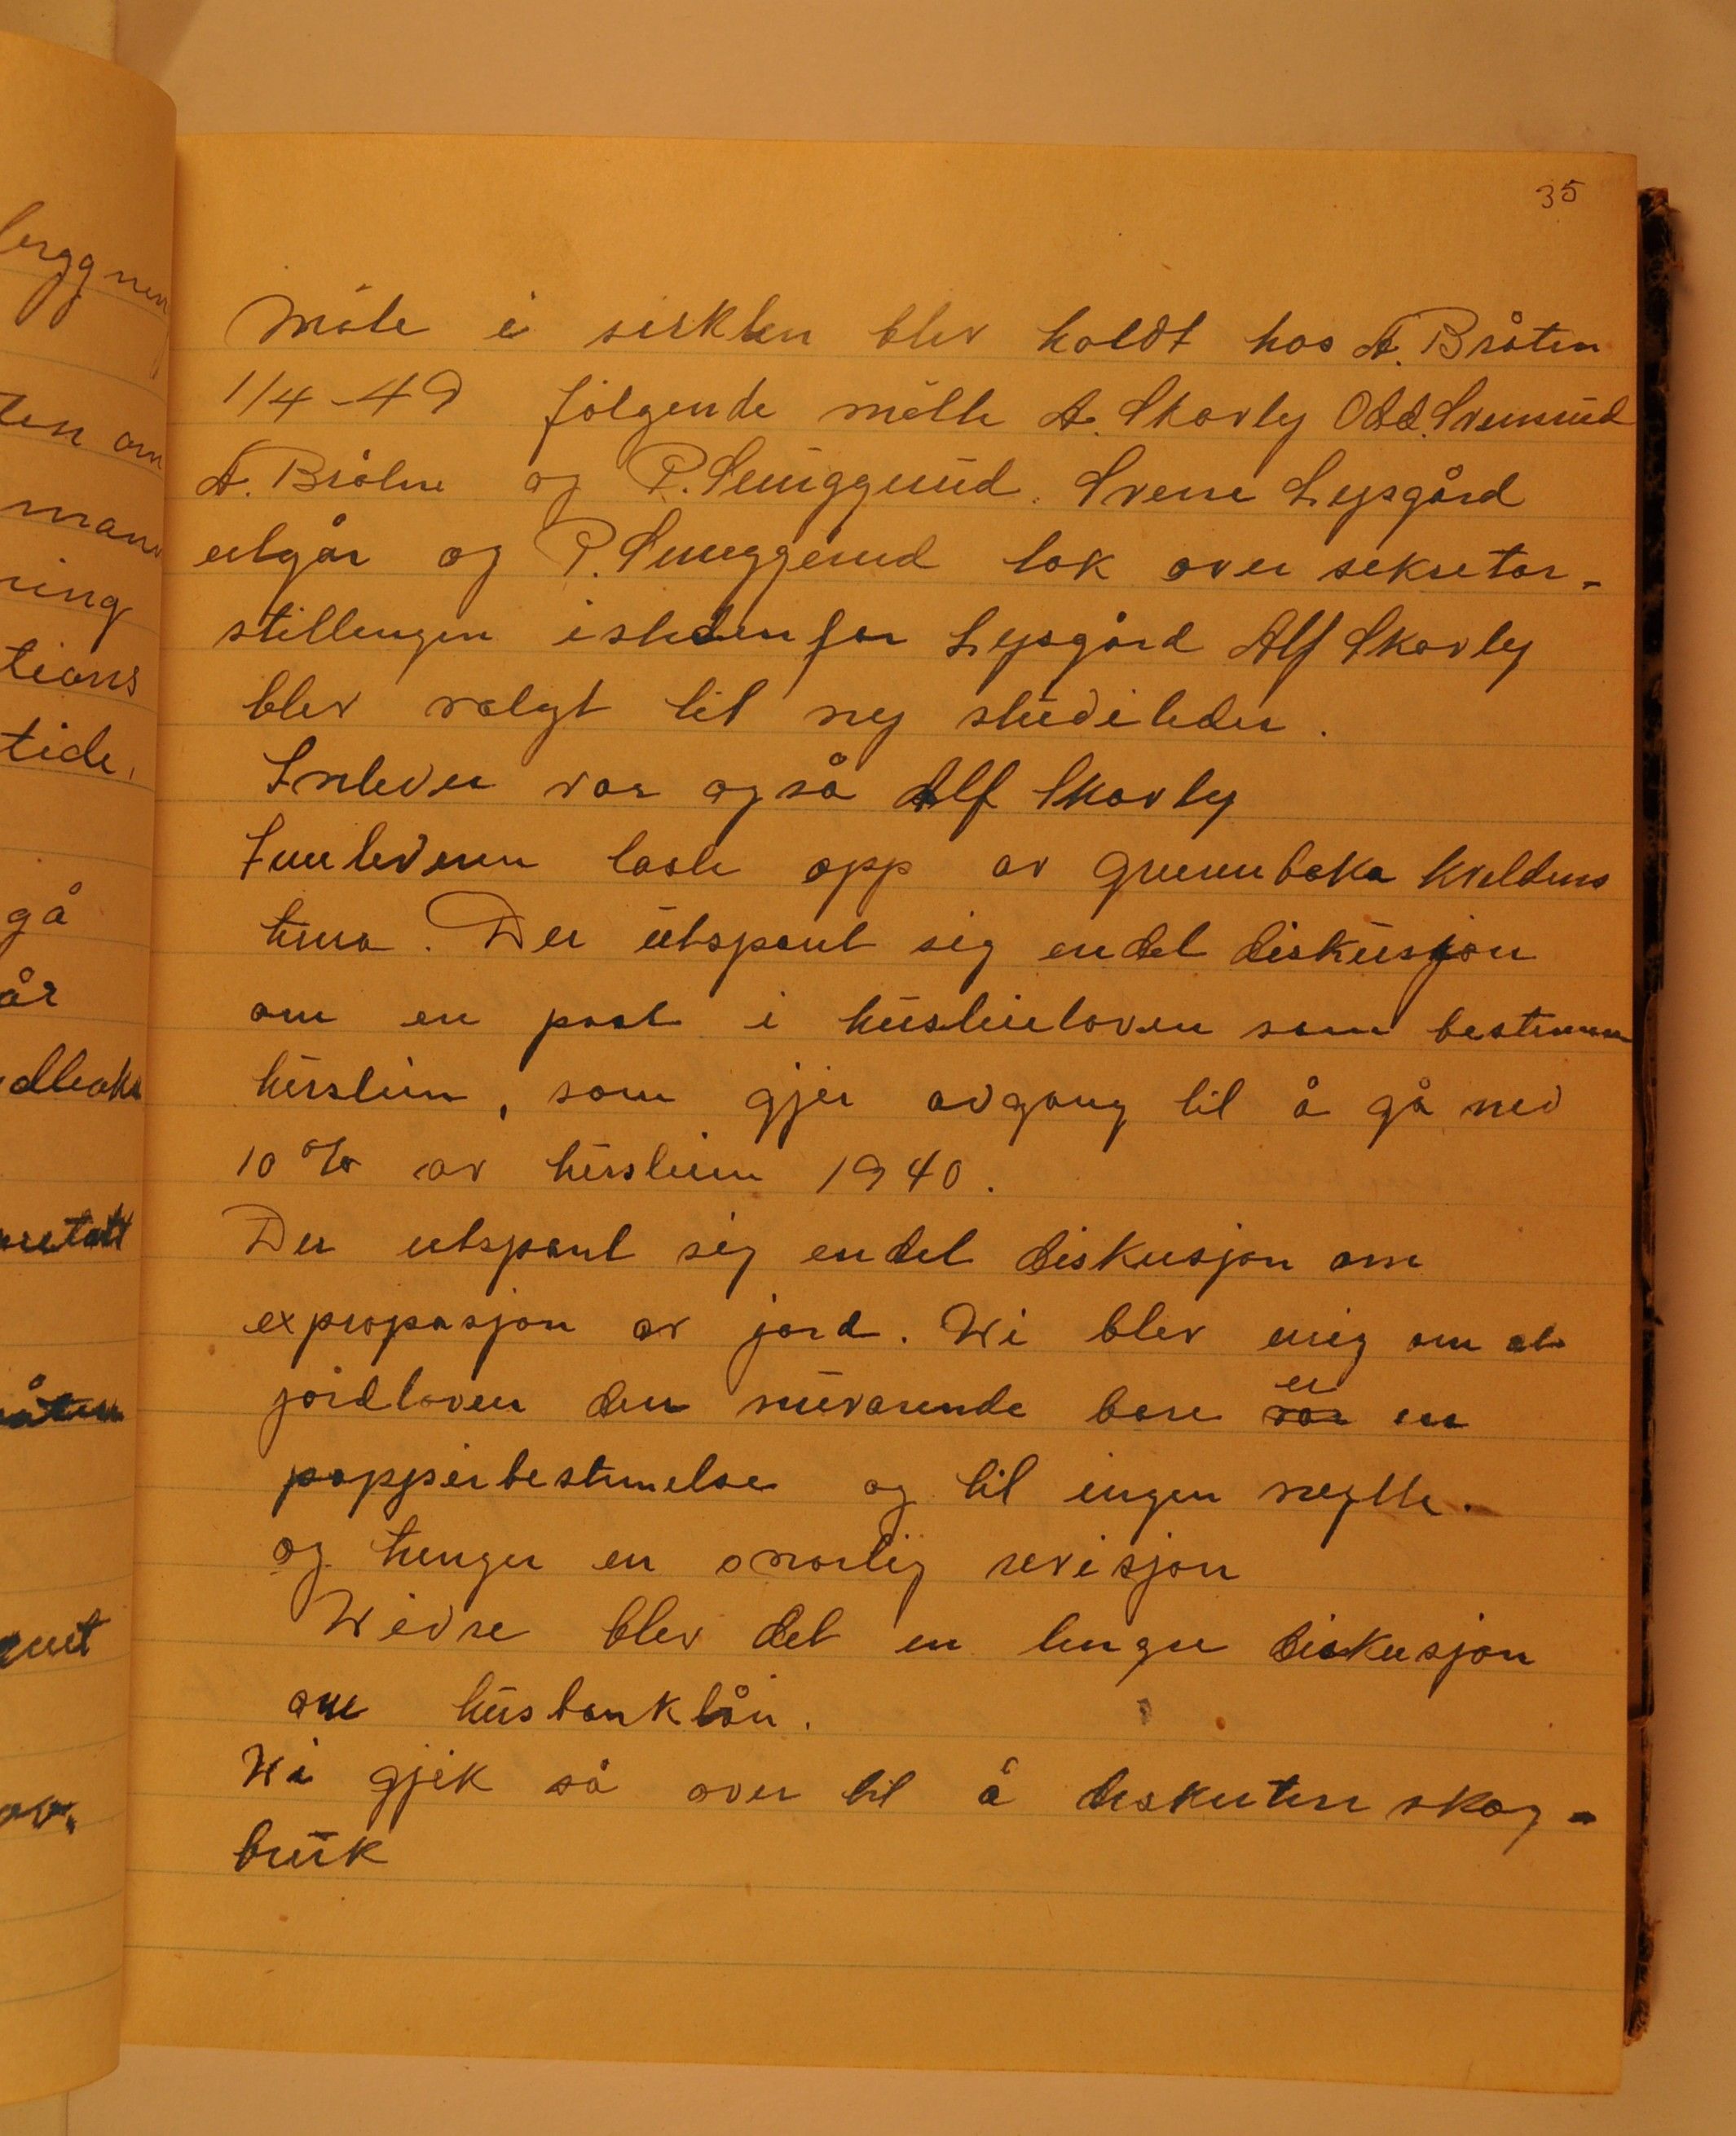 35
Møte i sirklen blev holdt hos A. Bråten
1/4-49 følgende møtte A. Skarley Odd. Svensrud
A. Bråten og P. Snuggerud. Sverre Lysgård
utgår og P. Snuggerud tok over sekretær-
stillingen istedenfor Lysgård Alf Skarley
blev valgt til ny studieleder.
Inleder var også Alf Skarley
Innlederen laste opp av grunnboka kveldens
tema. Der utspant sig endel diskusjon
om en post i husleieloven som bestemm
husleien, som gjer adgang til å gå ned
10 % av husleien 1940.
Der utspant sig endel diskusjon om
expropasjon av jord. Wi blev enig om at
jordloven den nuværende bare var er en
pappirbestemelse og til ingen nytte.
og trenger en snarlig revisjon
Widre blev det en lengre diskusjon
om husbanklån.
Wi gjik så over til å diskutere skog-
bruk
gå
år
tions
tide.
ring